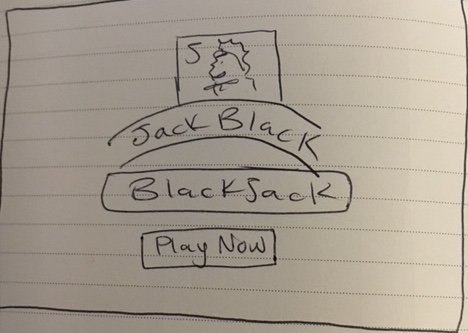 J
Jack Black
BlackJack
Play Now